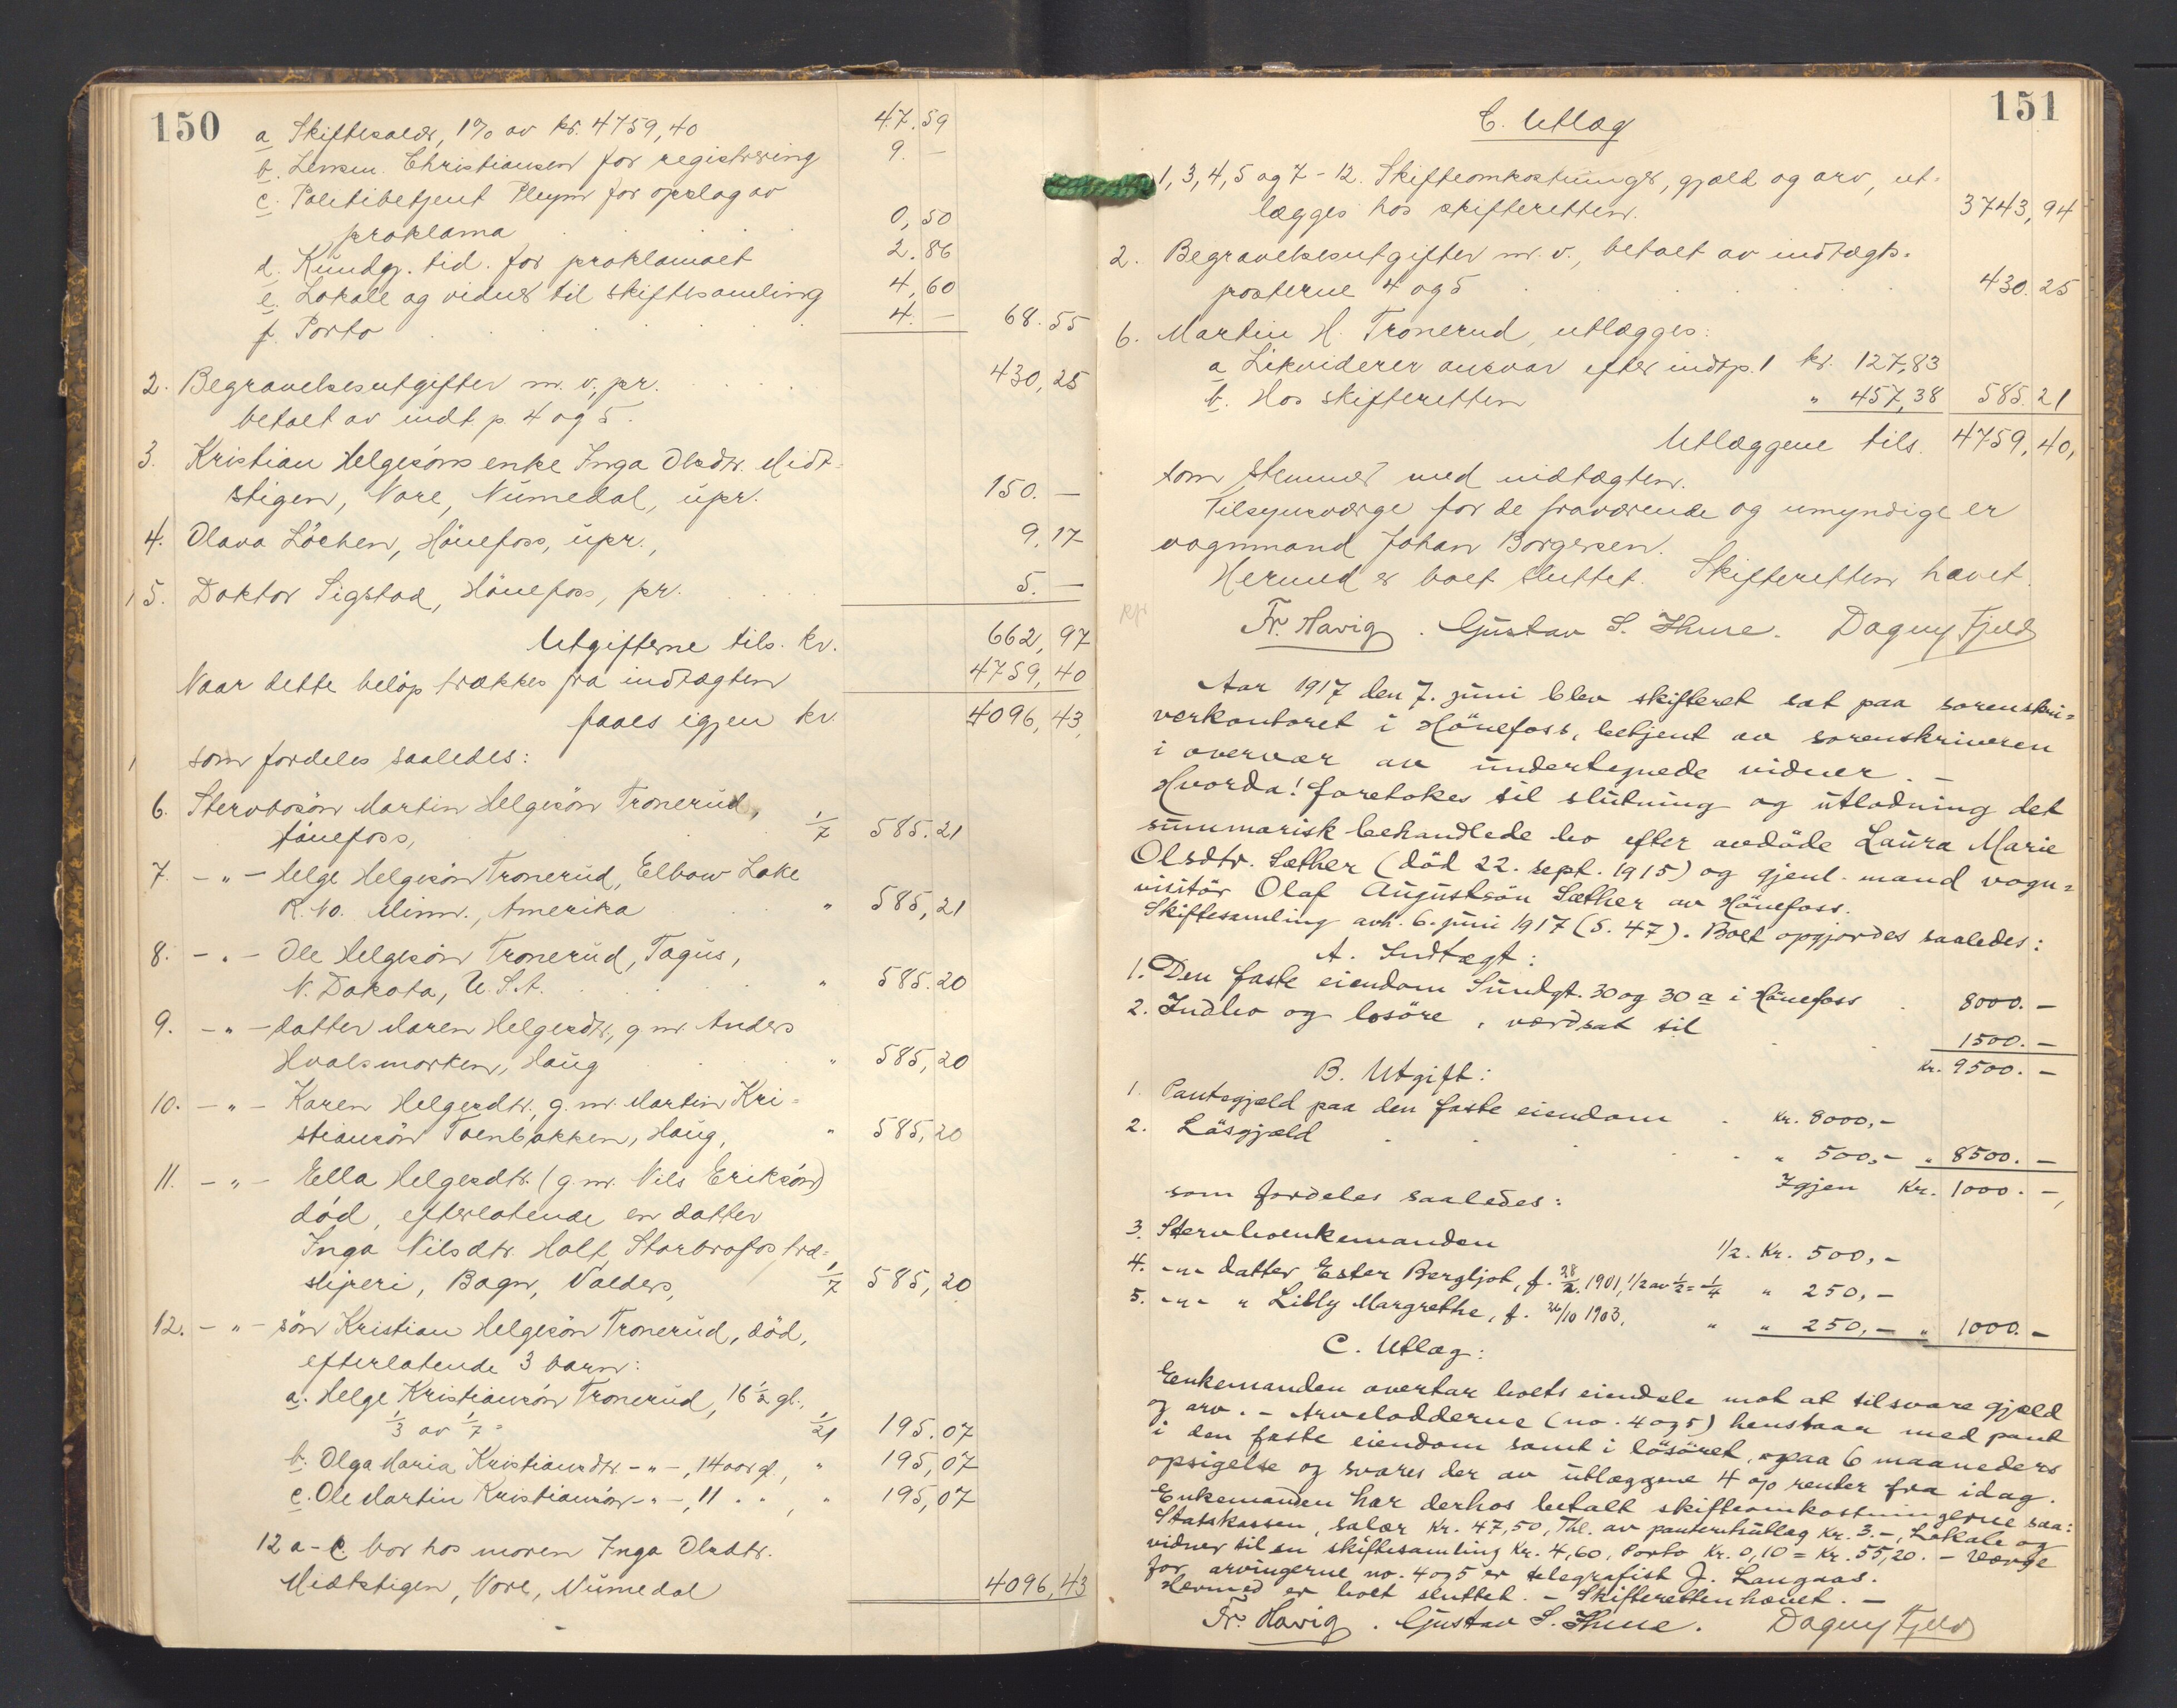 150
a Skiftesalær, 1% av kr. 4759,40 47.59
b. Lensm. Christiansen for registrering 9. —
c. Politibetjent Pleym for opslag av
proklama 0,50
d. Kundgj. tid. for proklamaet 2.86
e. Lokale og vidner til skiftesamling 4,60
f. Porto 4. — 68.55
2. Begravelsesutgifter m. v., pr. 430,25
betalt av indt. p. 4 og 5.
3. Kristian Helgesöns enke Inga Olsdtr. Midt-
stigen, Nore, Numedal, upr. 150. —
4. Olava Löchen, Hönefoss, upr., 9.17
5. Doktor Sigstad, Hönefoss, pr. 5. —
Utgifterne tils. kr. 662,97
Naar dette belöp trækkes fra indtægten 4759,40
faaes igjen kr. 4096,43,
som fordeles saaledes:
6. Stervbosön Martin Helgesön Tronerud,
Hönefoss, 1/7 585.21
7. —"— Helge Helgesön Tronerud, Elbow Lake
R. No. Minn., Amerika " 585,21
8. —"— Ole Helgesön Tronerud, Tagus,
N. Dakota, U.S.A. " 585.20
9. —"— datter Maren Helgesdtr, g. m. Anders
Hvalsmorken, Haug " 585,20
10. —"— Karen Helgesdtr., g. m. Martin Kri-
stiansön Toenbakken, Haug, " 585,20
11. —"— Ella Helgesdtr. (g. m. Nils Eriksön)
död, efterlatende en datter
Inga Nilsdtr. Holt, Storbrofos træ-
sliperi, Bagn, Valders, 1/7 585,20
12. —"— sön Kristian Helgesön Tronerud, död,
efterlatende 3 barn:
a. Helge Kristiansön Tronerud, 16 1/2 gl.,
1/3 av 1/7 = 1/21 195.07
b. Olga Maria Kristiansdtr. —"—, 14 aar gl., " 195,07
c. Ole Martin Kristiansön —"—, 11 " ", " 195,07
12 a-c. bor hos moren Inga Olsdtr.
Midtstigen, Nore, Numedal 4096,43
151
C. Utlæg
1, 3, 4, 5 og 7-12. Skifteomkostninger, gjæld og arv, ut-
lægges hos skifteretten. 3743,94
2. Begravelsesutgifter m. v., betalt av indtægts-
posterne 4 og 5 430.25
6. Martin H. Tronerud utlægges:
a. Likviderer ansvar efter indtp. 1 kr. 127,83
b. Hos skifteretten " 457,38 585.21
Utlæggene tils. 4759,40,
som stemmer med indtægten.
Tilsynsværge for de fraværende og umyndige er
vognmand Johan Borgersen.
Hermed er boet sluttet. Skifteretten hævet.
Fr. Havig. Gustav S. Thune. Dagny Fjeld
Aar 1917 den 7. juni blev skifteret sat paa sorenskri-
verkontoret i Hönefoss, betjent av sorenskriveren
i overvær av undertegnede vidner. —
Hvorda! foretokes til slutning og utlodning det
summarisk behandlede bo efter avdöde Laura Marie
Olsdtr. Sæther (död 22. sept. 1915) og gjenl. mand vogn-
visitör Olaf Augustsön Sæther av Hönefoss.
Skiftesamling avh. 6. juni 1917 (S. 47). Boet opgjordes saaledes:
A. Indtægt:
1. Den faste eiendom Sundgt. 30 og 30 a i Hönefoss 8000. —
2. Indbo og losöre, værdsat til 1500. —
Kr. 9500. —
B. Utgift:
1. Pantegjæld paa den faste eiendom Kr. 8000,-
2. Läsgjæld " 500,- " 8500. —
Igjen Kr. 1000. —,
som fordeles saaledes:
3. Stervboenkemanden 1/2. Kr. 500,-
4. -"- datter Ester Bergljot, f. 28/2. 1901, 1/2 av 1/2 = 1/4 " 250,-
5. -"- " Lilly Margrethe, f. 26/10 1903, " " 250,- " 1000. -
C. Utlæg:
Enkemanden overtar boets eiendele mot at tilsvare gjæld
og arv. - Arvelodderne (no. 4 og 5) henstaar med pant
i den faste eiendom samt i lösöret, og paa 6 maaneders
opsigelse og svares der av utlæggene 4 o/o renter fra idag.
Enkemanden har derhos betalt skifteomkostningerne saa:
Statskassen, salær Kr. 47,50, Thl. av panteretsutlæg Kr. 3.-, Lokale og
vidner til en skiftesamling Kr. 4,60, Porto Kr. 0,10 = Kr. 55,20. - Værge
for arvingerne no. 4 og 5 er telegrafist J. Langaas.
Hermed er boet sluttet. - Skifteretten hævet. —
Fr. Havig. Gustav S. Thune. Dagny Fjeld